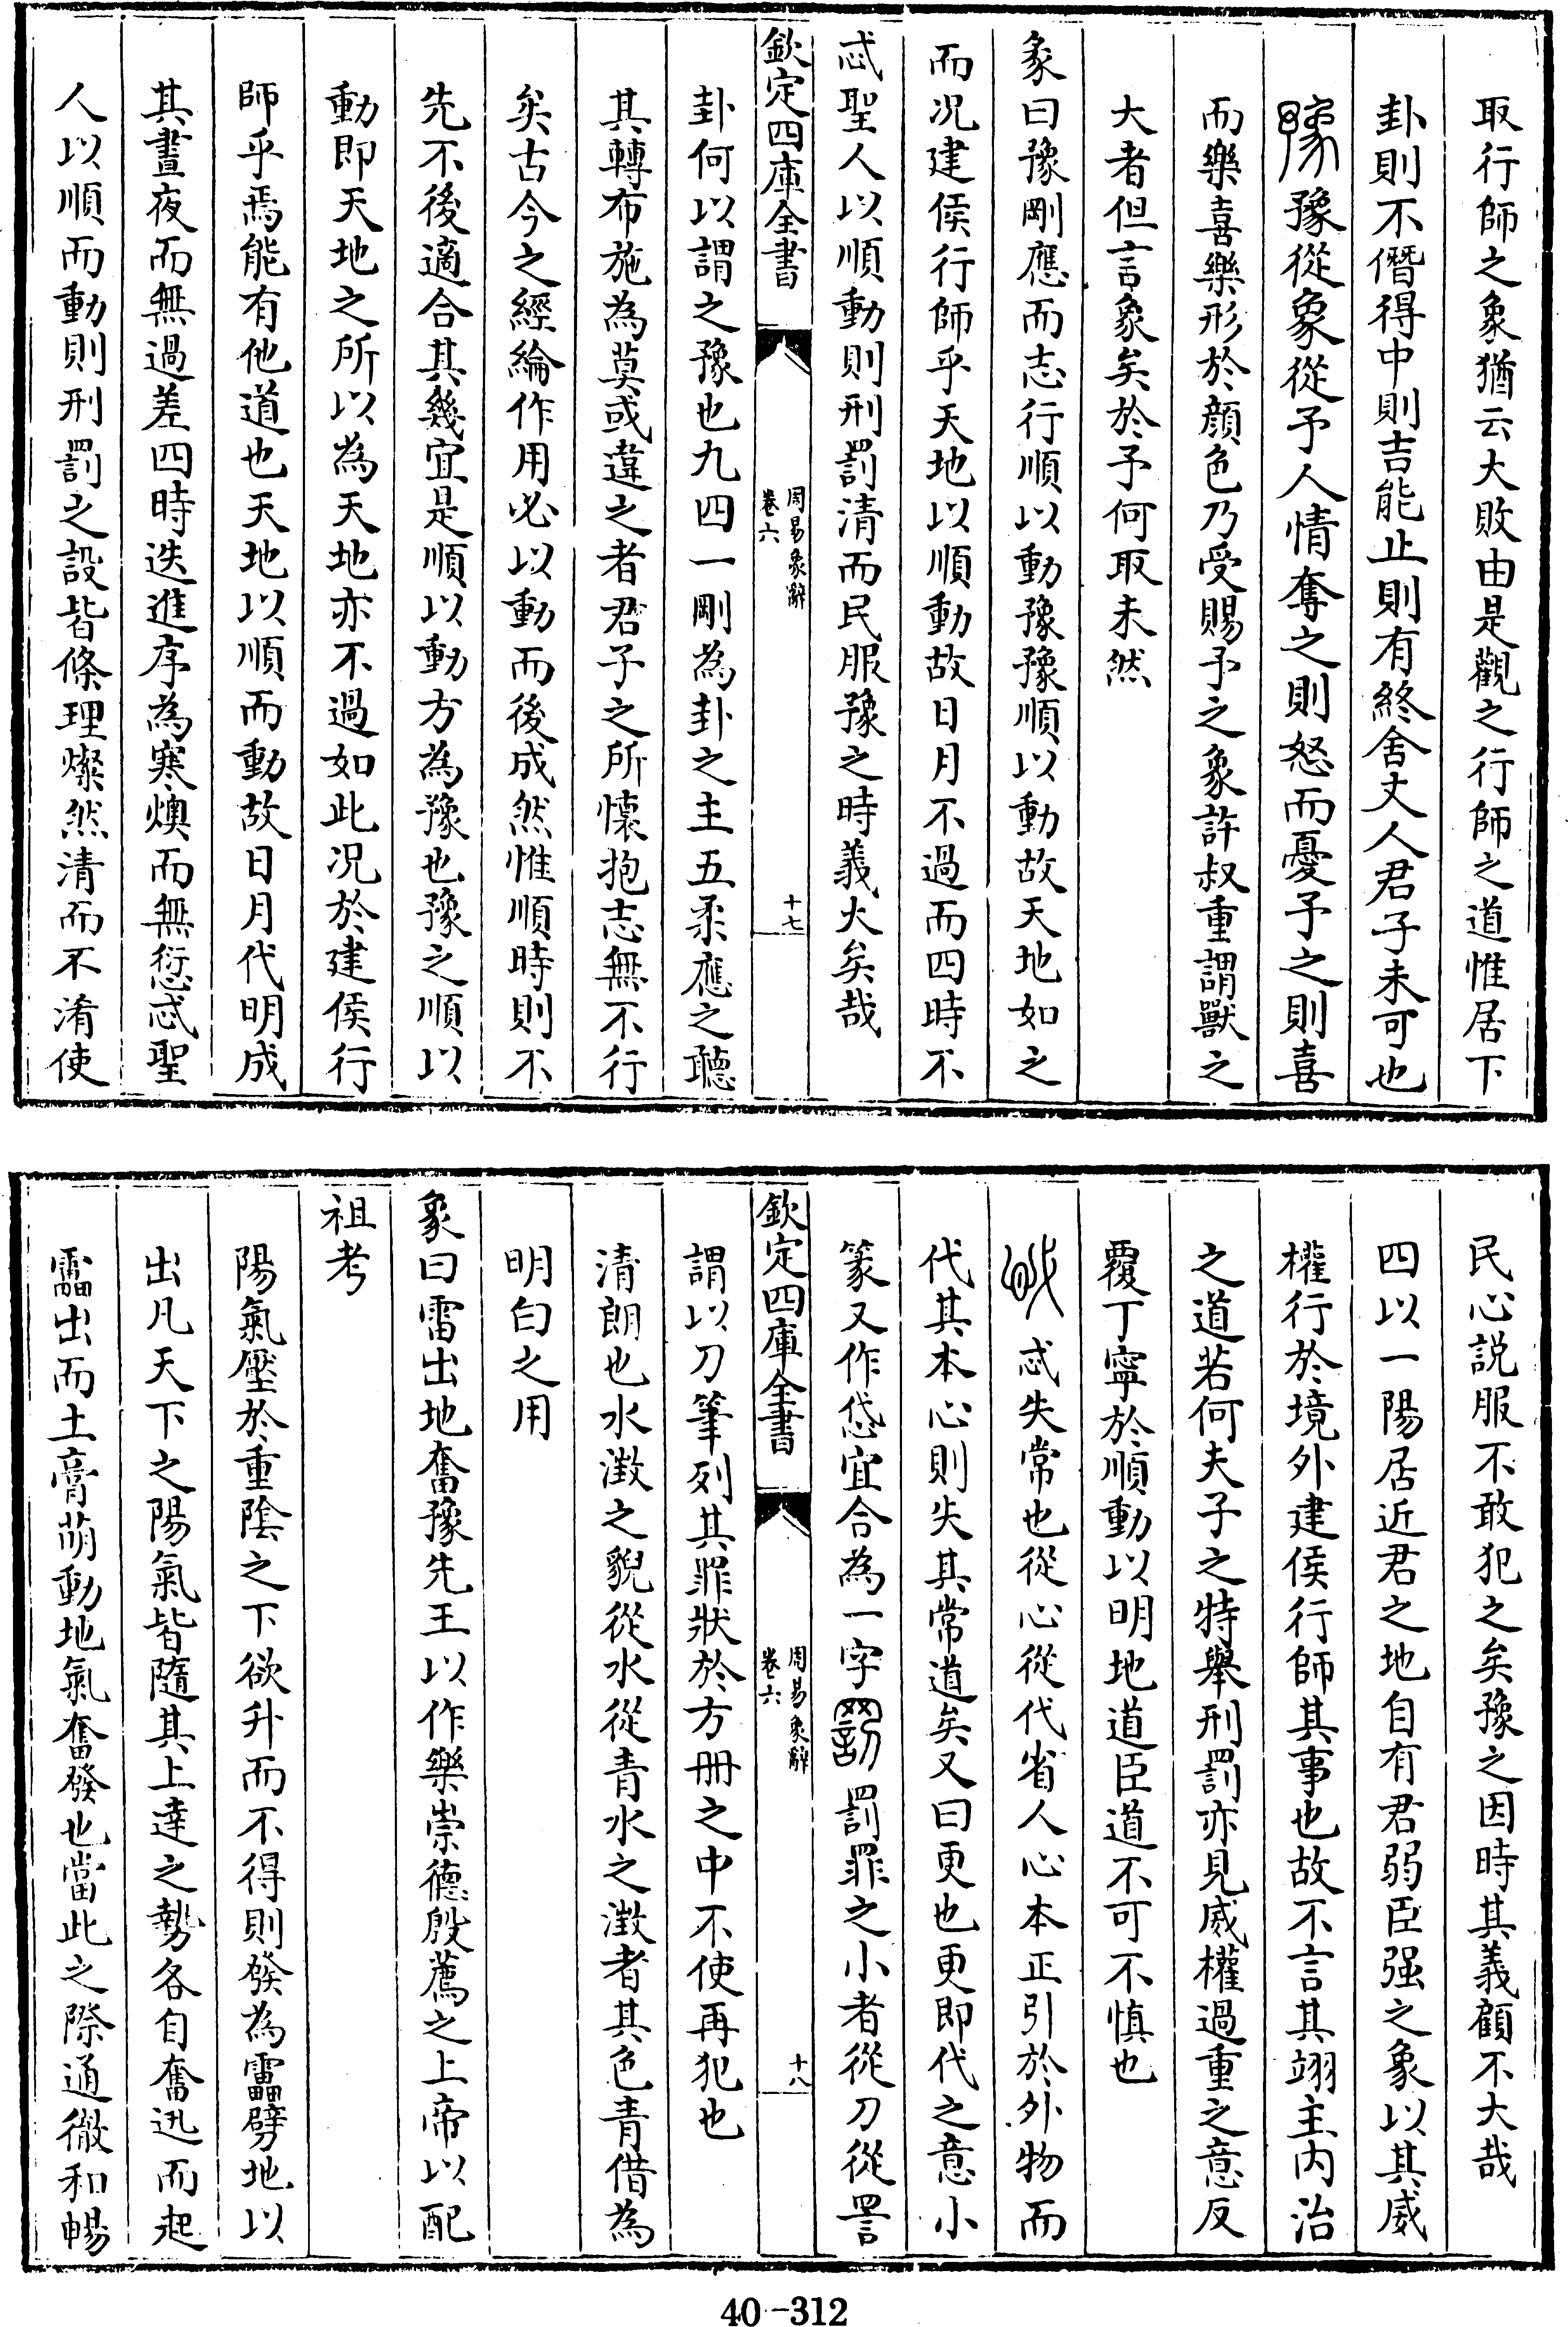 取行師之象猶云大敗由是觀之行師之道惟居下
卦則不僭得中則吉能止則有終舍丈人君子未可也
豫從象從予人情奪之則怒而憂予之則喜
而樂喜樂形於顔色乃受賜予之象許叔重謂獸之
大者但言象矣於予何取未然
彖曰豫剛應而志行順以動豫豫順以動故天地如之
而况建侯行師乎天地以順動故日月不過而四時不
忒聖人以順動則刑罰清而民服豫之時義大矣哉
欽定四庫全書
周易象辭
卷六
十七
卦何以謂之豫也九四一剛為卦之主五柔應之聽
其轉布施為莫或違之者君子之所懷抱志無不行
矣古今之經綸作用必以動而後成然惟順時則不
先不後適合其幾宜是順以動方為豫也豫之順以
動即天地之所以為天地亦不過如此况於建侯行
師乎焉能有他道也天地以順而動故日月代明成
其晝夜而無過差四時迭進序為寒燠而無愆忒聖
人以順而動則刑罰之設皆條理燦然清而不淆使
民心説服不敢犯之矣豫之因時其義顧不大哉
四以一陽居近君之地自有君弱臣强之象以其威
權行於境外建侯行師其事也故不言其翊主内治
之道若何夫子之特舉刑罰亦見威權過重之意反
覆丁寧於順動以明地道臣道不可不慎也
忒失常也從心從代省人心本正引於外物而
代其本心則失其常道矣又曰更也更即代之意小
篆又作㤥宜合為一字罰罪之小者從刀從詈
欽定四庫全書
周易象辭
卷六
十八
謂以刀筆列其罪狀於方冊之中不使再犯也
清朗也水澂之貌從水從青水之澂者其色青借為
明白之用
象曰雷出地奮豫先王以作樂崇德殷薦之上帝以配
祖考
陽氣壓於重陰之下欲升而不得則發為靁劈地以
出凡天下之陽氣皆隨其上達之勢各自奮迅而起
靁出而土膏萌動地氣奮發也當此之際通徹和暢
40-312